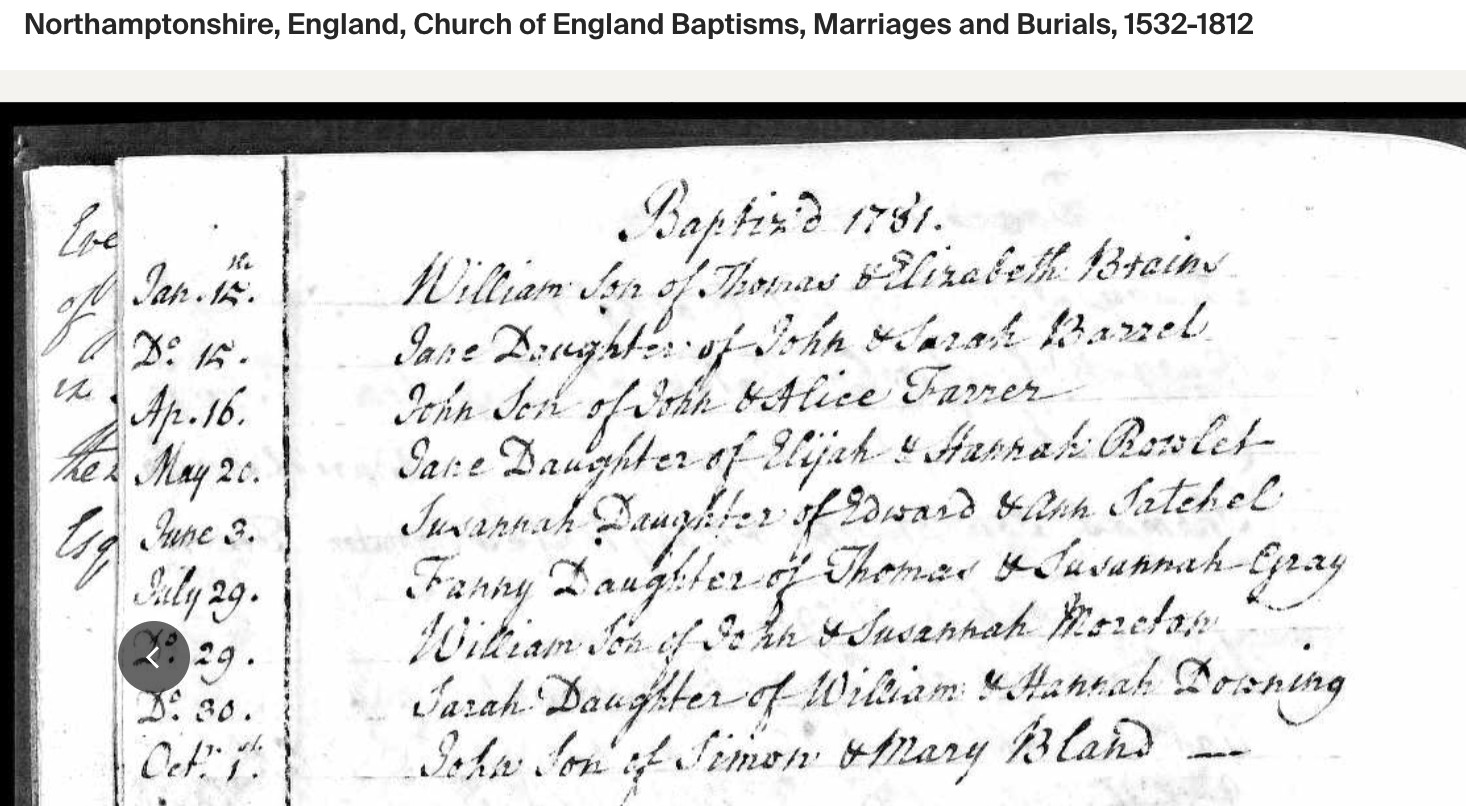 Northamptonshire, England, Church of England Baptisms, Marriages and Burials, 1532-1812
Baptiz'd 1781.
Jan. 15th. William Son of Thomas & Elizabeth Brains
Do. 15. Jane Daughter of John & Sarah Barrel
Ap. 16. John Son of John & Alice Farrer
May 20. Jane Daughter of Elijah & Hannah Rowlet
June 3. Susannah Daughter of Edward & Ann Satchel
July 29. Fanny Daughter of Thomas & Susannah Gray
Do. 29. William Son of John & Susannah Moreton
Do. 30. Sarah Daughter of William & Hannah Downing
Octr. 1st. John Son of Simon & Mary Bland —